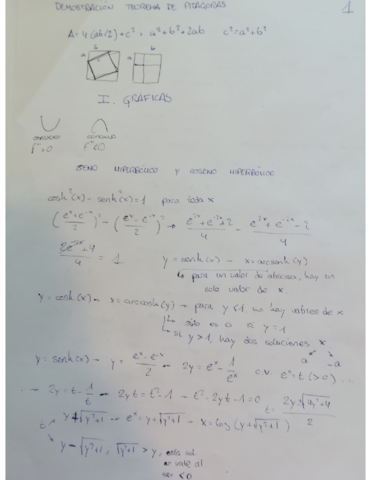 DEMOSTRACIÓN TEOREMA DE PITÁGORAS
1
A = 4(ab/2) + c² = a² + b² + 2ab c² = a² + b²
b b
I. GRÁFICAS
f''>0 f''<0
SENO HIPERBÓLICO Y COSENO HIPERBÓLICO
cosh²(x) - senh²(x) = 1 para toda x
(eˣ+e⁻ˣ/2)² - (eˣ-e⁻ˣ/2)² → e²ˣ+e⁻²ˣ+2/4 - e²ˣ+e⁻²ˣ-2/4
= 1 y = senh(x) - x = arcsenh(y)
↳ para un valor de abscisa, hay un
solo valor de x
y = cosh(x) - x = arccosh(y) → para y<1 no hay valores de x
↳ sólo es 0 si y=1
↳ si y>1, hay dos soluciones x
a -a
y = senh(x) - y = eˣ-e⁻ˣ/2 - 2y = eˣ - 1/eˣ c.v eˣ = t (>0) ...
- 2y = t - 1/t - 2yt = t² - 1 - t² - 2yt - 1 = 0 - t = 2y±√4y²+4/2
t y+√y²+1 - eˣ = y+√y²+1 - x = log(y+√y²+1)
y - √y²+1, √y²+1 > y,
<0